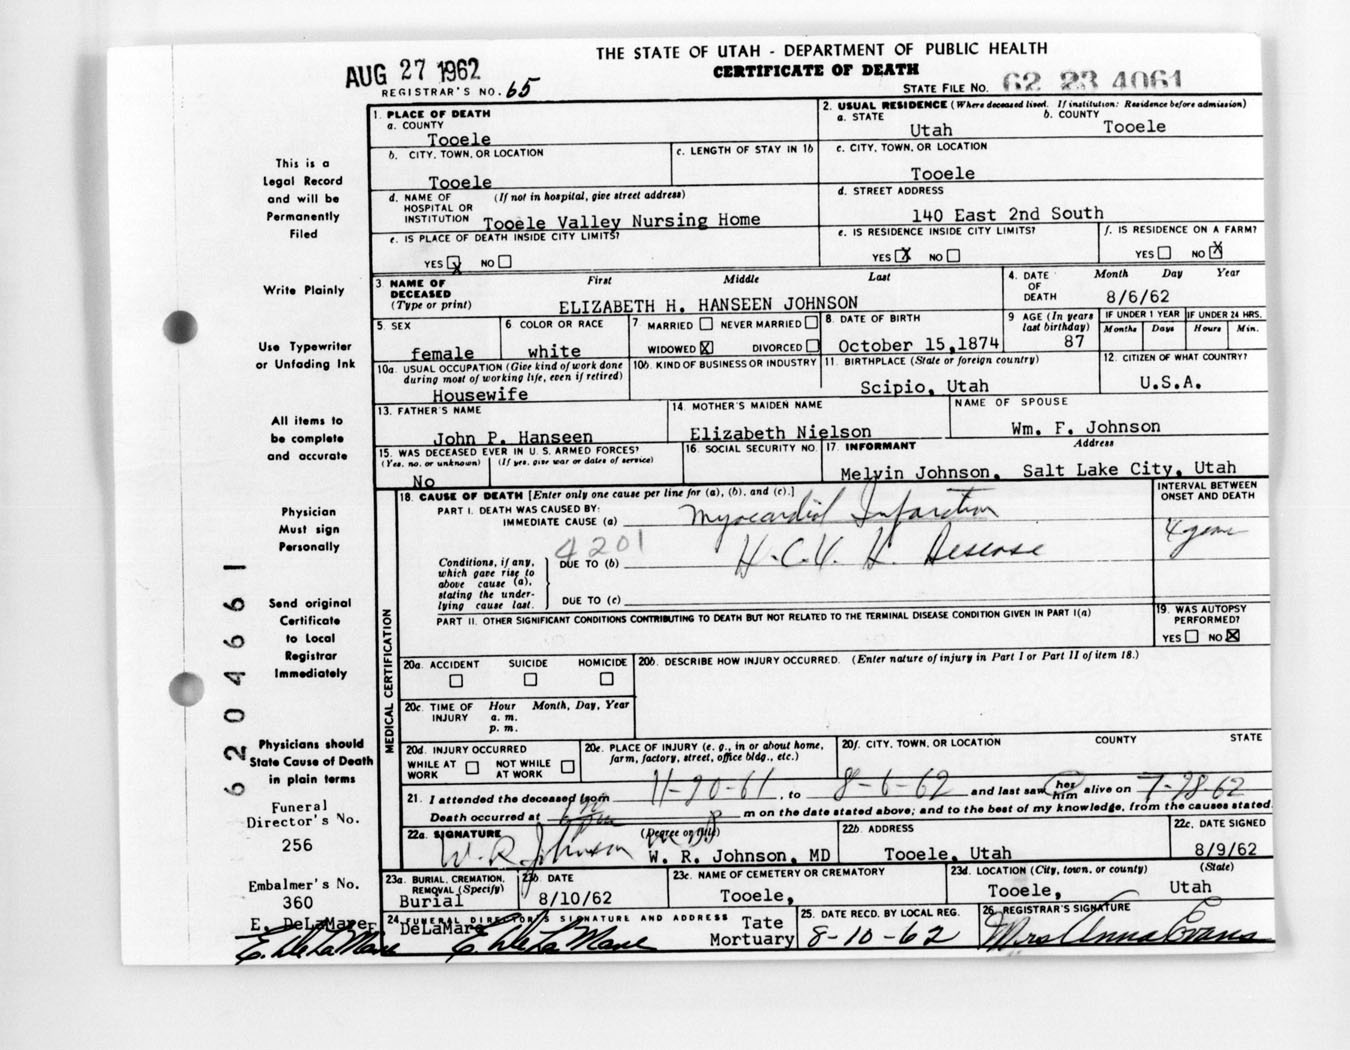 THE STATE OF UTAH - DEPARTMENT OF PUBLIC HEALTH
CERTIFICATE OF DEATH
AUG 27 1962
REGISTRAR'S NO. 65
STATE FILE NO. 62 23 4061
This is a
Legal Record
and will be
Permanently
Filed
Write Plainly
Use Typewriter
or Unfading Ink
All items to
be complete
and accurate
Physician
Must sign
Personally
Send original
Certificate
to Local
Registrar
Immediately
Physicians should
State Cause of Death
in plain terms
Funeral
Director's No.
256
Embalmer's No.
360
E. DeLaMare
E. DeLaMare
6204661
1. PLACE OF DEATH
a. COUNTY
Tooele
b. CITY, TOWN, OR LOCATION
Tooele
c. LENGTH OF STAY IN 1b
d. NAME OF (If not in hospital, give street address)
HOSPITAL OR
INSTITUTION Tooele Valley Nursing Home
e. IS PLACE OF DEATH INSIDE CITY LIMITS?
YES X NO
2. USUAL RESIDENCE (Where deceased lived. If institution: Residence before admission)
a. STATE b. COUNTY
Utah Tooele
c. CITY, TOWN, OR LOCATION
Tooele
d. STREET ADDRESS
140 East 2nd South
e. IS RESIDENCE INSIDE CITY LIMITS?
YES X NO
f. IS RESIDENCE ON A FARM?
YES NO X
3 NAME OF First Middle Last
DECEASED
(Type or print) ELIZABETH H. HANSEEN JOHNSON
4. DATE Month Day Year
OF
DEATH 8/6/62
5. SEX
female
6 COLOR OR RACE
white
7 MARRIED NEVER MARRIED
WIDOWED X DIVORCED
8. DATE OF BIRTH
October 15,1874
9 AGE (In years
last birthday)
87
IF UNDER 1 YEAR IF UNDER 24 HRS.
Months Days Hours Min.
10a. USUAL OCCUPATION (Give kind of work done
during most of working life, even if retired)
Housewife
10b. KIND OF BUSINESS OR INDUSTRY
11. BIRTHPLACE (State or foreign country)
Scipio, Utah
12. CITIZEN OF WHAT COUNTRY?
U.S.A.
13. FATHER'S NAME
John P. Hanseen
14. MOTHER'S MAIDEN NAME
Elizabeth Nielson
NAME OF SPOUSE
Wm. F. Johnson
15. WAS DECEASED EVER IN U. S. ARMED FORCES?
(Yes, no, or unknown) (If yes, give war or dates of service)
No
16. SOCIAL SECURITY NO.
17. INFORMANT Address
Melvin Johnson, Salt Lake City, Utah
MEDICAL CERTIFICATION
18. CAUSE OF DEATH [Enter only one cause per line for (a), (b), and (c).]
PART I. DEATH WAS CAUSED BY:
IMMEDIATE CAUSE (a) Myocardial Infarction
INTERVAL BETWEEN
ONSET AND DEATH
4201
Conditions, if any,
which gave rise to
above cause (a),
stating the under-
lying cause last.
DUE TO (b) H.C.V. H. Disease
DUE TO (c)
PART II. OTHER SIGNIFICANT CONDITIONS CONTRIBUTING TO DEATH BUT NOT RELATED TO THE TERMINAL DISEASE CONDITION GIVEN IN PART I(a)
19. WAS AUTOPSY
PERFORMED?
YES NO X
20a. ACCIDENT SUICIDE HOMICIDE
20b. DESCRIBE HOW INJURY OCCURRED. (Enter nature of injury in Part I or Part II of item 18.)
20c. TIME OF Hour Month, Day, Year
INJURY a. m.
p. m.
20d. INJURY OCCURRED
WHILE AT NOT WHILE
WORK AT WORK
20e. PLACE OF INJURY (e. g., in or about home,
farm, factory, street, office bldg., etc.)
20f. CITY, TOWN, OR LOCATION COUNTY STATE
21. I attended the deceased from 11-20-61, to 8-6-62 and last saw her him alive on 7-28-62
Death occurred at m on the date stated above; and to the best of my knowledge, from the causes stated.
22a. SIGNATURE (Degree or title)
W. R. Johnson W. R. Johnson, MD
22b. ADDRESS
Tooele, Utah
22c. DATE SIGNED
8/9/62
23a. BURIAL, CREMATION,
REMOVAL (Specify)
Burial
23b. DATE
8/10/62
23c. NAME OF CEMETERY OR CREMATORY
Tooele,
23d. LOCATION (City, town, or county) (State)
Tooele, Utah
24. FUNERAL DIRECTOR'S SIGNATURE AND ADDRESS Tate
DeLaMare Mortuary
E. DeLaMare
25. DATE RECD. BY LOCAL REG.
8-10-62
26. REGISTRAR'S SIGNATURE
Mrs Anna E Evans